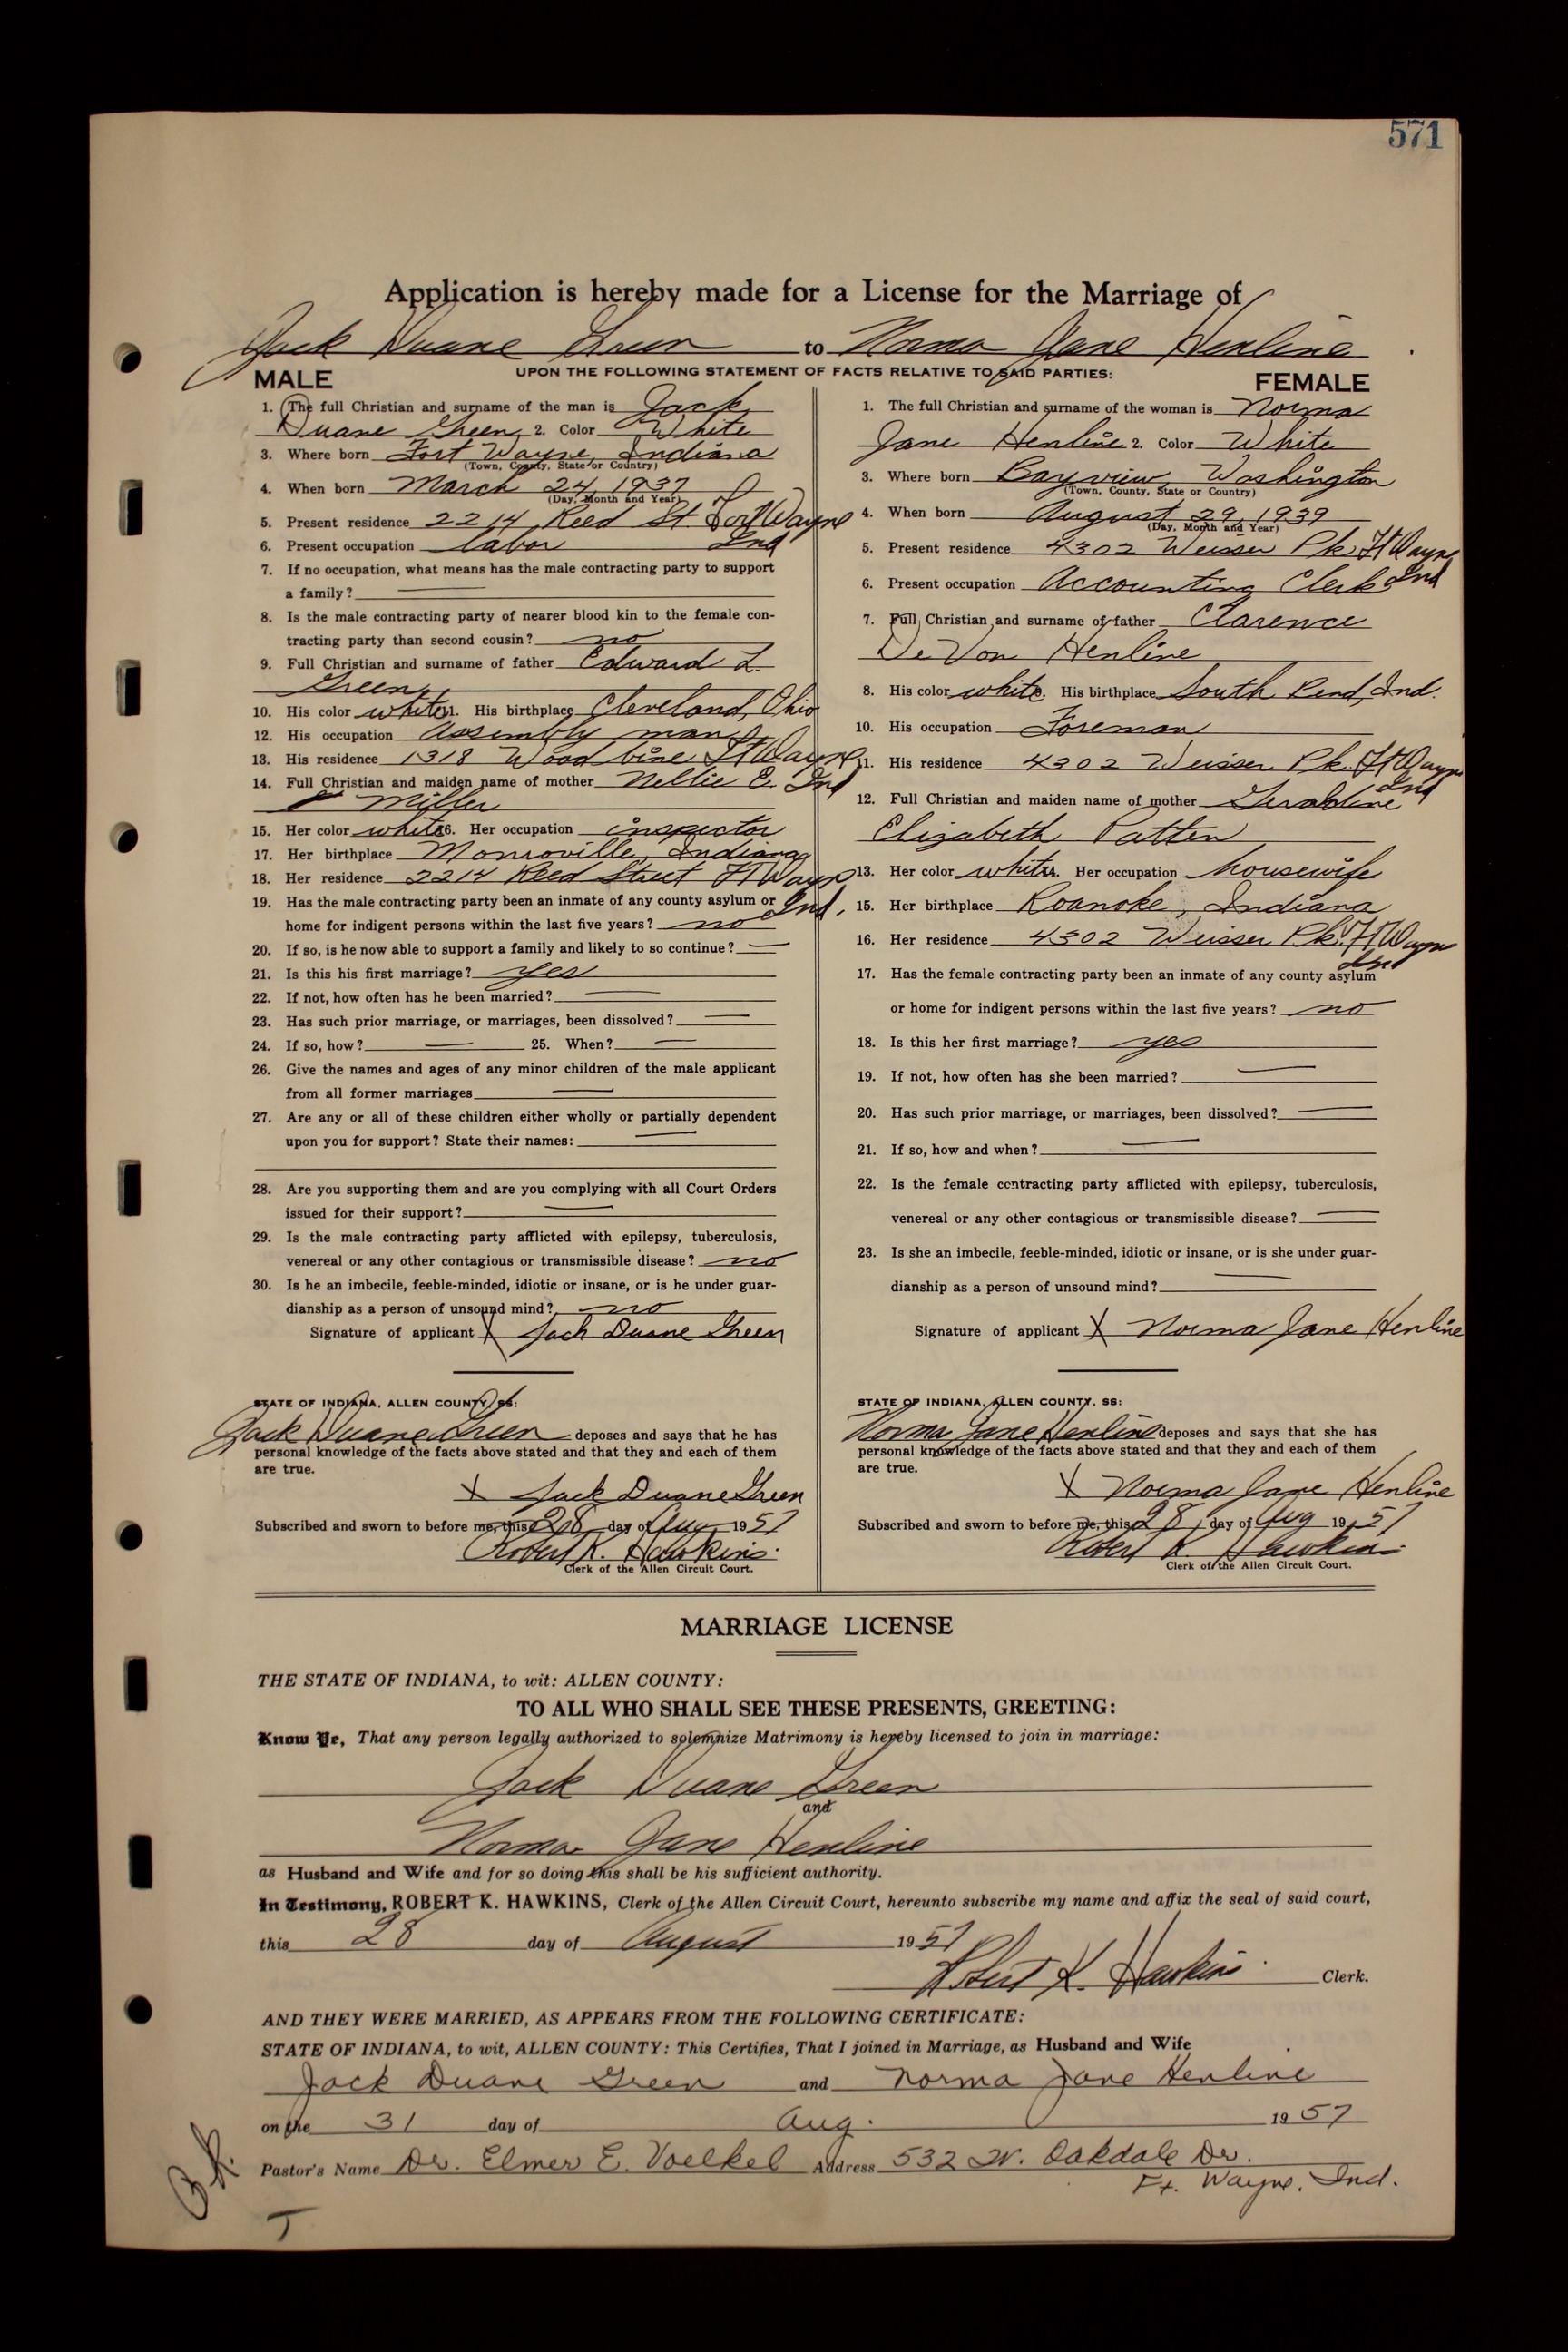 571
Application is hereby made for a License for the Marriage of
Jack Duane Green to Norma Jane Henline
UPON THE FOLLOWING STATEMENT OF FACTS RELATIVE TO SAID PARTIES:
MALE
1. The full Christian and surname of the man is Jack
Duane Green 2. Color White
3. Where born Fort Wayne, Indiana
(Town, County, State or Country)
4. When born March 24, 1937
(Day, Month and Year)
5. Present residence 2214 Reed St. Fort Wayne
Ind
6. Present occupation labor
7. If no occupation, what means has the male contracting party to support
a family? —
8. Is the male contracting party of nearer blood kin to the female con-
tracting party than second cousin? no
9. Full Christian and surname of father Edward L.
Green
10. His color white 11. His birthplace Cleveland, Ohio
12. His occupation assembly man
13. His residence 1318 Wood bine Ft Wayne
Ind
14. Full Christian and maiden name of mother Nellie E.
Miller
15. Her color white 16. Her occupation inspector
17. Her birthplace Monroville, Indiana
18. Her residence 2214 Reed Street Ft Wayne
Ind.
19. Has the male contracting party been an inmate of any county asylum or
home for indigent persons within the last five years? no
20. If so, is he now able to support a family and likely to so continue? —
21. Is this his first marriage? yes
22. If not, how often has he been married? —
23. Has such prior marriage, or marriages, been dissolved? —
24. If so, how? — 25. When? —
26. Give the names and ages of any minor children of the male applicant
from all former marriages —
27. Are any or all of these children either wholly or partially dependent
upon you for support? State their names: —
28. Are you supporting them and are you complying with all Court Orders
issued for their support? —
29. Is the male contracting party afflicted with epilepsy, tuberculosis,
venereal or any other contagious or transmissible disease? no
30. Is he an imbecile, feeble-minded, idiotic or insane, or is he under guar-
dianship as a person of unsound mind? no
Signature of applicant X Jack Duane Green
STATE OF INDIANA, ALLEN COUNTY, SS:
Jack Duane Green deposes and says that he has
personal knowledge of the facts above stated and that they and each of them
are true.
X Jack Duane Green
Subscribed and sworn to before me, this 28 day of Aug 1957
Robert K. Hawkins
Clerk of the Allen Circuit Court.
FEMALE
1. The full Christian and surname of the woman is Norma
Jane Henline 2. Color White
3. Where born Bayview, Washington
(Town, County, State or Country)
4. When born August 29, 1939
(Day, Month and Year)
5. Present residence 4302 Weisser Pk. Ft Wayne
Ind
6. Present occupation Accounting Clerk
7. Full Christian and surname of father Clarence
DeVon Henline
8. His color white. His birthplace South Bend, Ind.
10. His occupation Foreman
11. His residence 4302 Weisser Pk. Ft Wayne
Ind
12. Full Christian and maiden name of mother Geraldine
Elizabeth Patten
13. Her color white. Her occupation housewife
15. Her birthplace Roanoke, Indiana
16. Her residence 4302 Weisser Pk. Ft Wayne
Ind
17. Has the female contracting party been an inmate of any county asylum
or home for indigent persons within the last five years? no
18. Is this her first marriage? yes
19. If not, how often has she been married? —
20. Has such prior marriage, or marriages, been dissolved? —
21. If so, how and when? —
22. Is the female contracting party afflicted with epilepsy, tuberculosis,
venereal or any other contagious or transmissible disease? —
23. Is she an imbecile, feeble-minded, idiotic or insane, or is she under guar-
dianship as a person of unsound mind? —
Signature of applicant X Norma Jane Henline
STATE OF INDIANA, ALLEN COUNTY, SS:
Norma Jane Henline deposes and says that she has
personal knowledge of the facts above stated and that they and each of them
are true.
X Norma Jane Henline
Subscribed and sworn to before me, this 28 day of Aug 1957
Robert K. Hawkins
Clerk of the Allen Circuit Court.
MARRIAGE LICENSE
THE STATE OF INDIANA, to wit: ALLEN COUNTY:
TO ALL WHO SHALL SEE THESE PRESENTS, GREETING:
Know Ye, That any person legally authorized to solemnize Matrimony is hereby licensed to join in marriage:
Jack Duane Green
and
Norma Jane Henline
as Husband and Wife and for so doing this shall be his sufficient authority.
In Testimony, ROBERT K. HAWKINS, Clerk of the Allen Circuit Court, hereunto subscribe my name and affix the seal of said court,
this 28 day of August 1957
Robert K. Hawkins Clerk.
AND THEY WERE MARRIED, AS APPEARS FROM THE FOLLOWING CERTIFICATE:
STATE OF INDIANA, to wit, ALLEN COUNTY: This Certifies, That I joined in Marriage, as Husband and Wife
Jack Duane Green and Norma Jane Henline
on the 31 day of Aug. 1957
Pastor's Name Dr. Elmer E. Voelkel Address 532 W. Oakdale Dr.
Ft. Wayne, Ind.
T